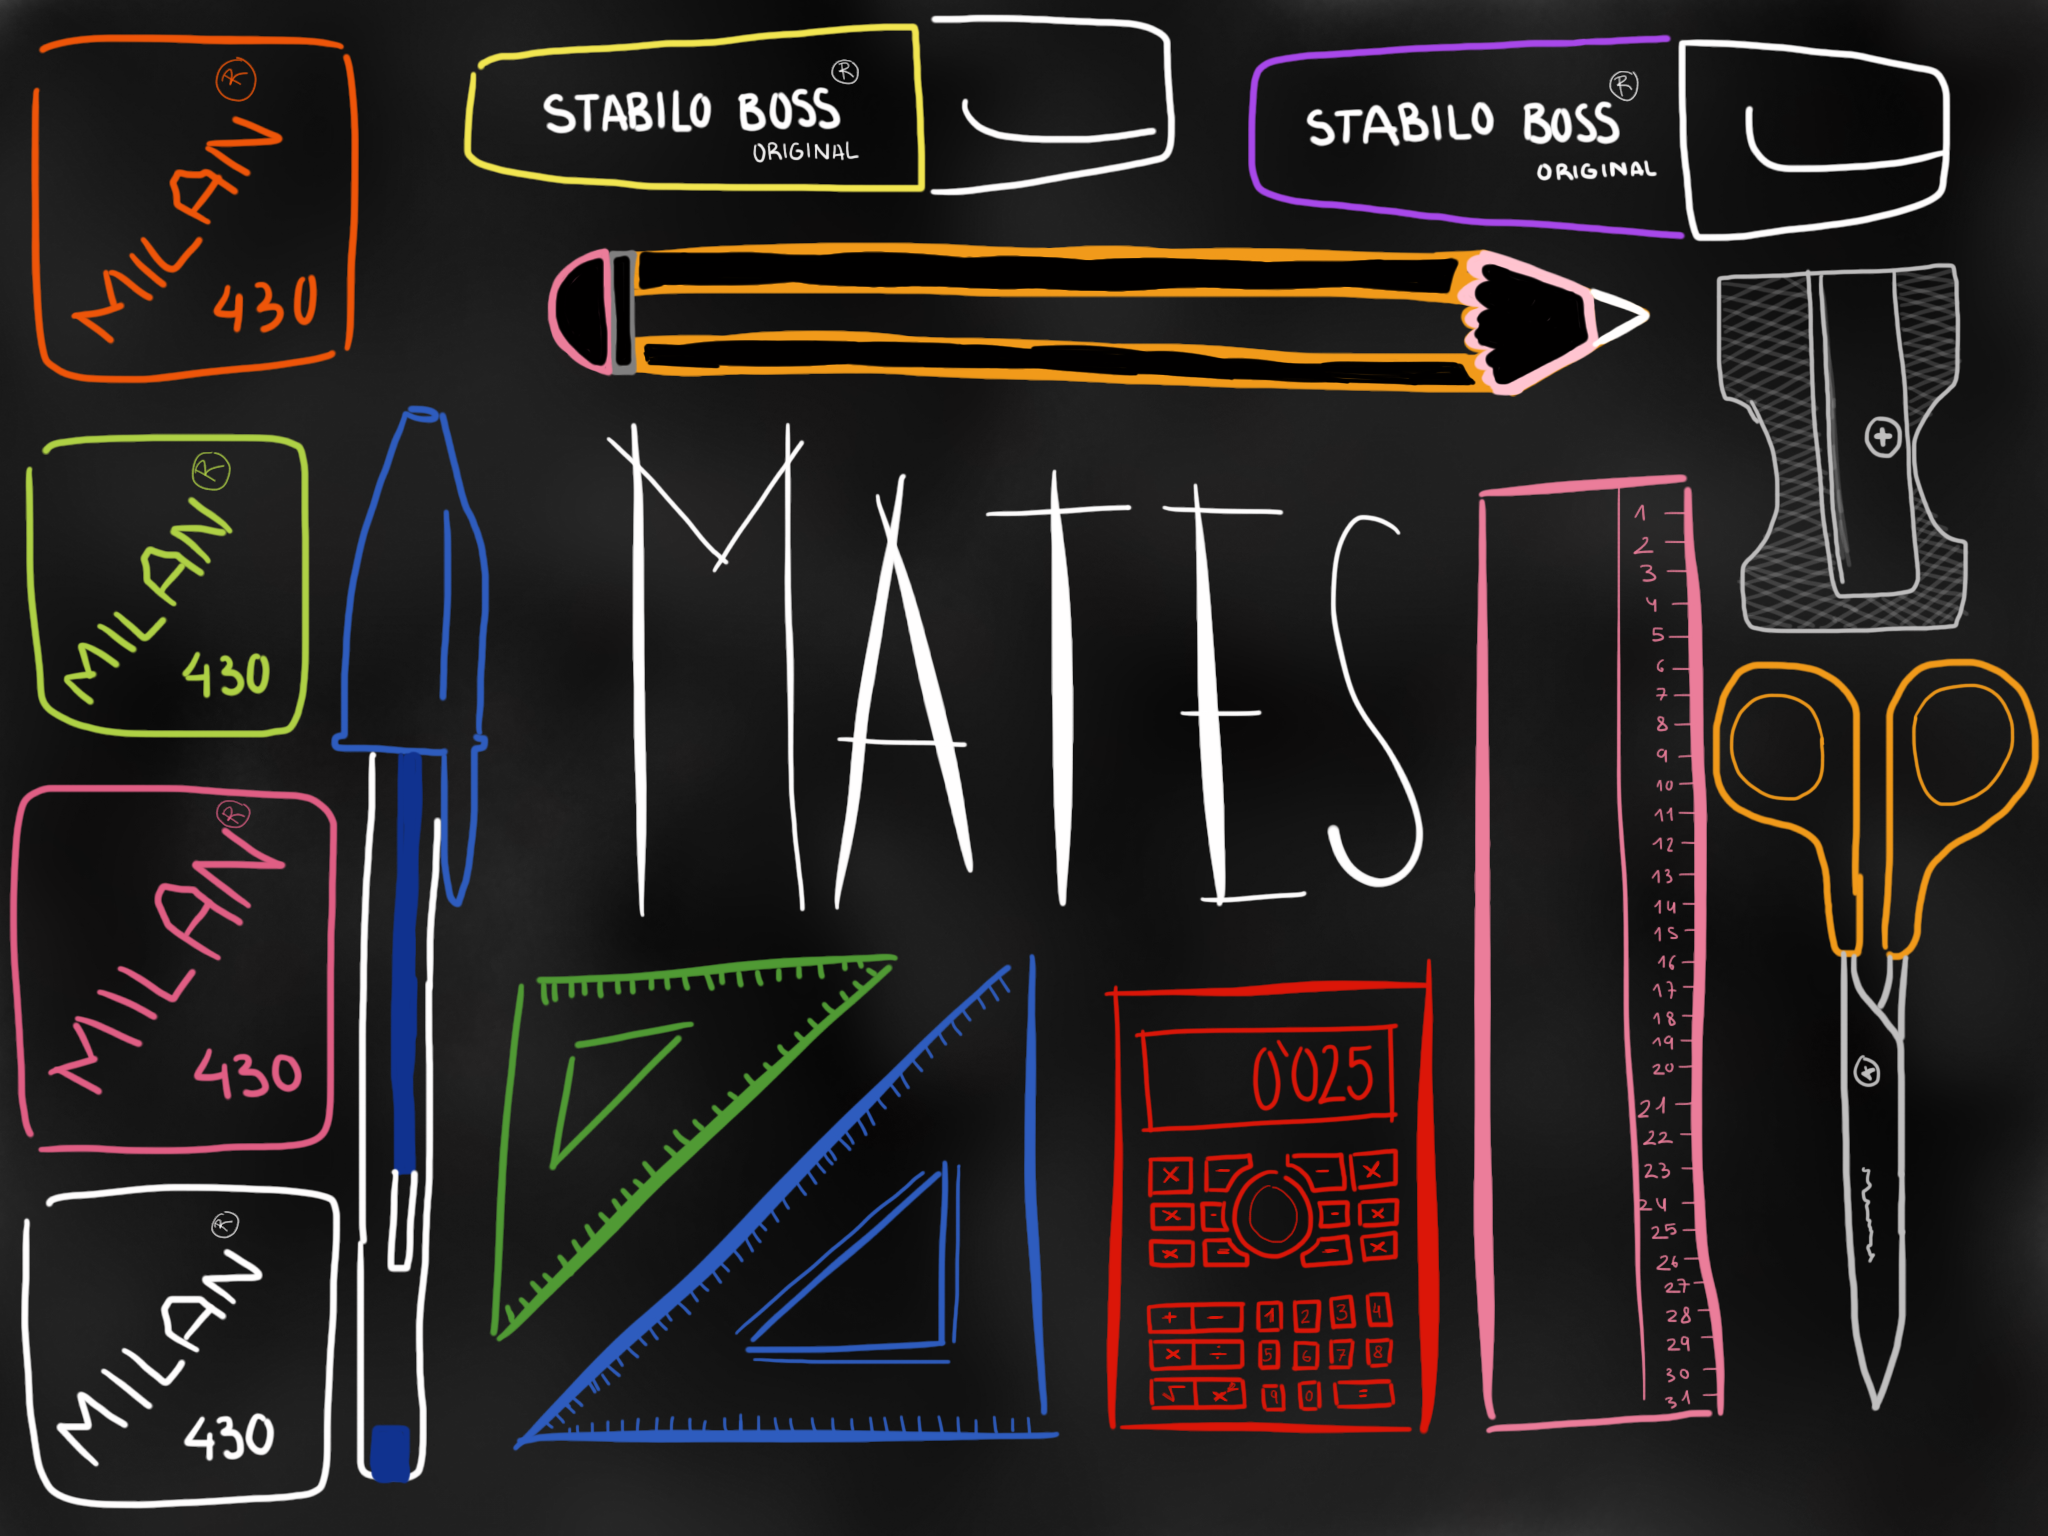 MILAN®
430
STABILO BOSS®
ORIGINAL
STABILO BOSS®
ORIGINAL
MILAN®
430
MATES
MILAN®
430
MILAN®
430
0'025
× - - ×
× - - ×
× = - ×
+ - 1 2 3 4
× ÷ 5 6 7 8
√ x² 9 0 =
1
2
3
4
5
6
7
8
9
10
11
12
13
14
15
16
17
18
19
20
21
22
23
24
25
26
27
28
29
30
31